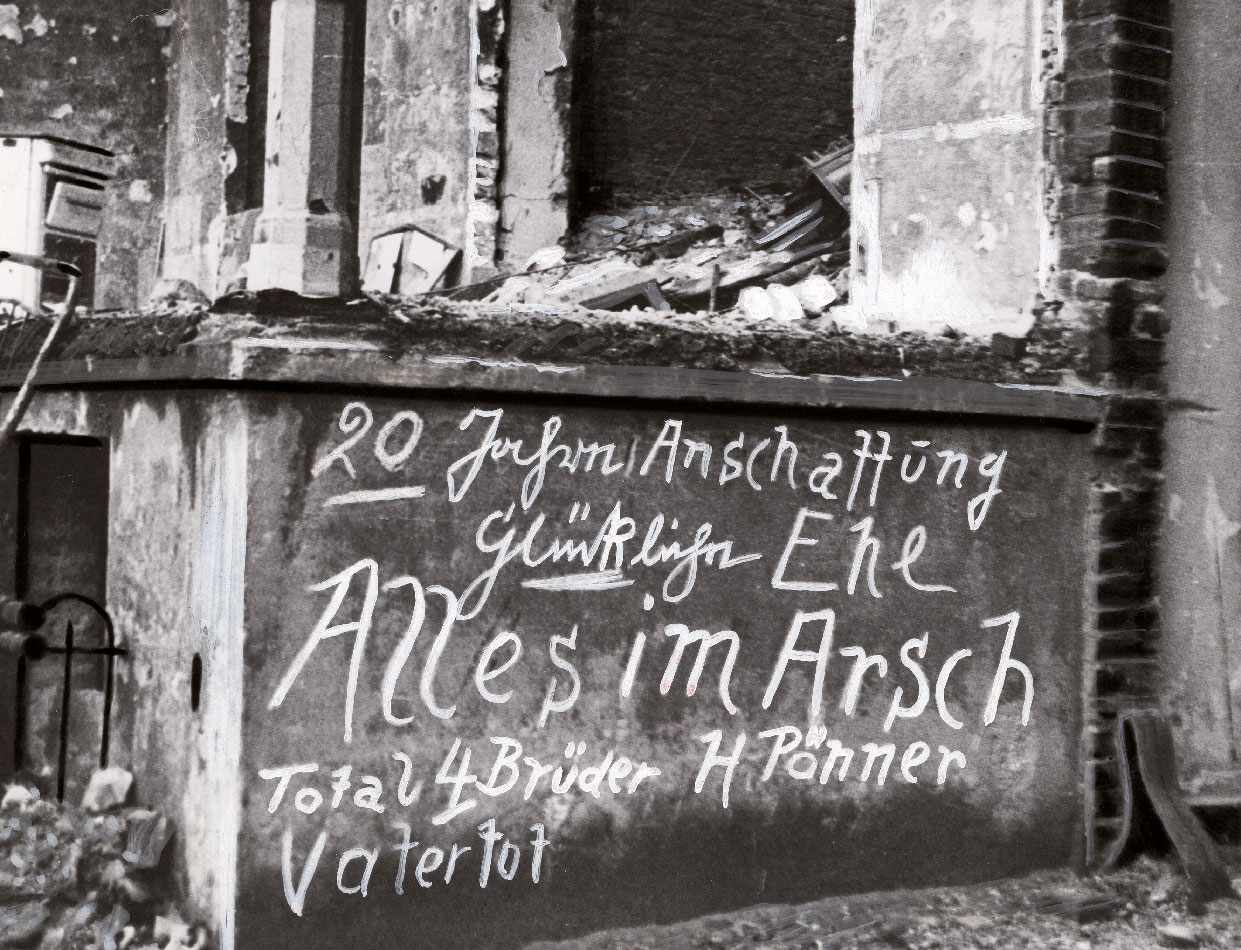 20 Jahrn Anschaffung
Glücklichn Ehe
Alles im Arsch
Total 4 Brüder H Pönner
Vater tot